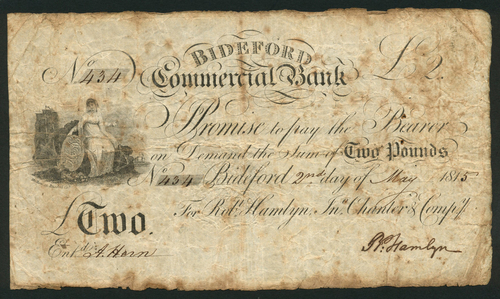 BIDEFORD
No 434 £ 2.
Commercial Bank
I Promise to pay the Bearer
on Demand the Sum of Two Pounds
No 434 Bideford 2nd day of May 1815
For Robt. Hamlyn, Jno. Chanter & Compy.
£ Two.
Entd. A. Horn
Rt. Hamlyn